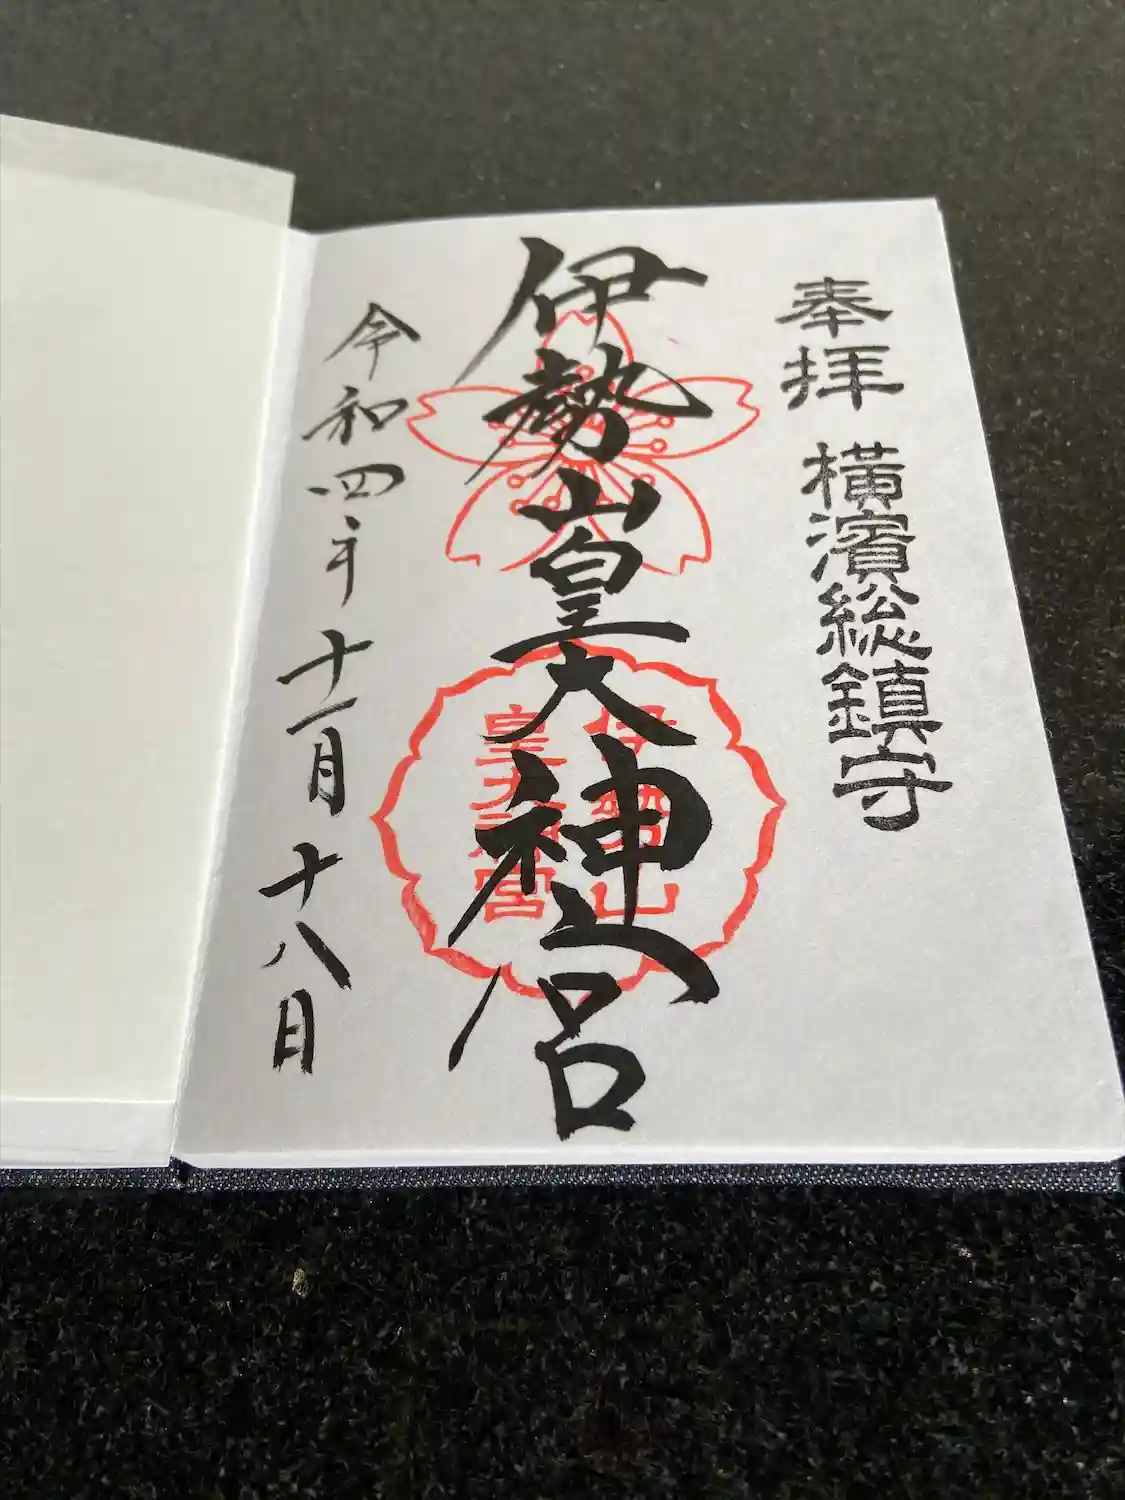 奉拝 横濱総鎮守
伊勢山皇大神宮
伊勢山
皇大神宮
令和四年十一月十八日